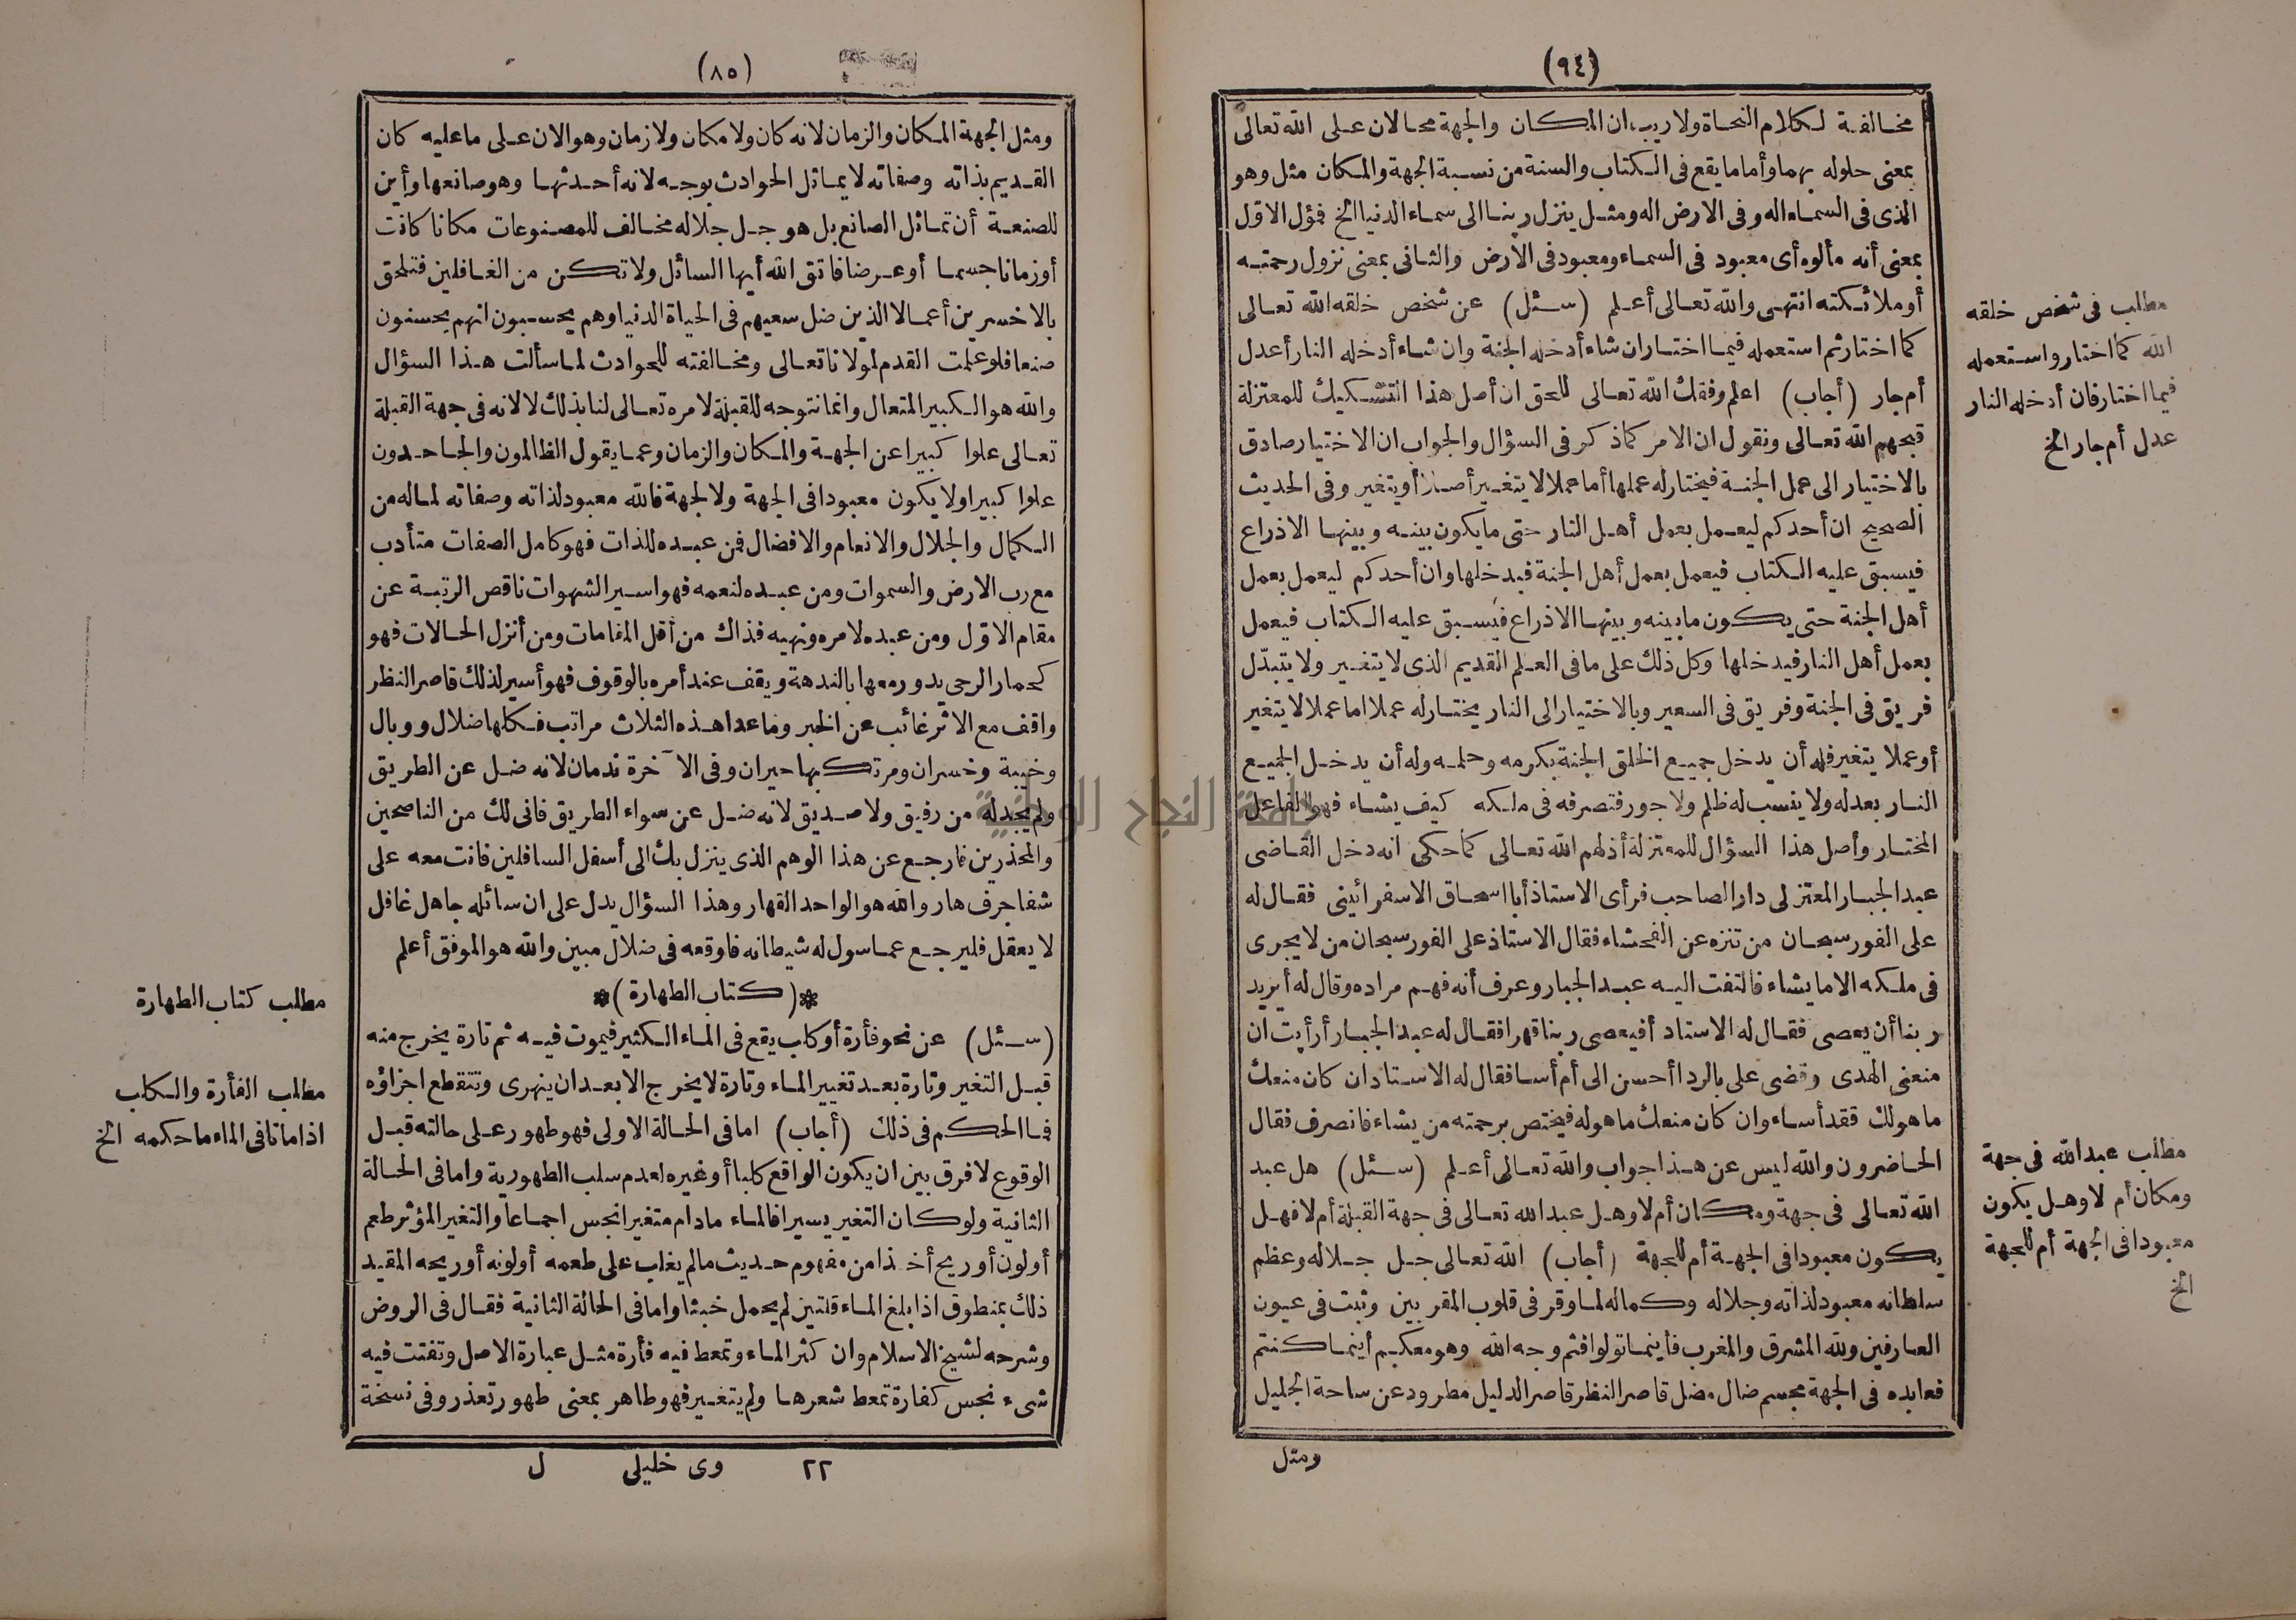 (٩٤)
مخالفة لكلام النحاة ولا ريب ان المكان والجهة محالان على الله تعالى
بمعنى حلوله بهما وأما ما يقع فى الكتاب والسنة من نسبة الجهة والمكان مثل وهو
الذى فى السماء اله وفى الارض اله ومثل ينزل ربنا الى سماء الدنيا الخ فمؤل الاول
بمعنى أنه مألوه أى معبود فى السماء ومعبود فى الارض والثانى بمعنى نزول رحمته
أو ملائكته انتهى والله تعالى أعلم (سئل) عن شخص خلقه الله تعالى
كما اختار ثم استعمله فيما اختار ان شاء أدخله الجنة وان شاء أدخله النار أعدل
أم جار (أجاب) اعلم وفقك الله تعالى للحق ان أصل هذا التشكيك للمعتزلة
قبحهم الله تعالى ونقول ان الامر كما ذكر فى السؤال والجواب ان الاختيار صادق
بالاختيار الى عمل الجنة فيختار له عملها أما عملا لا يتغير أصلا أو يتغير وفى الحديث
الصحيح ان أحدكم ليعمل بعمل أهل النار حتى ما يكون بينه وبينها الا ذراع
فيسبق عليه الكتاب فيعمل بعمل أهل الجنة فيدخلها وان أحدكم ليعمل بعمل
أهل الجنة حتى يكون ما بينه وبينها الا ذراع فيسبق عليه الكتاب فيعمل
بعمل أهل النار فيدخلها وكل ذلك على ما فى العلم القديم الذى لا يتغير ولا يتبدّل
فريق فى الجنة وفريق فى السعير وبالاختيار الى النار يختار له عملا اما عملا لا يتغير
أو عملا يتغير فله أن يدخل جميع الخلق الجنة بكرمه وحلمه وله أن يدخل الجميع
النار بعدله ولا ينسب له ظلم ولا جور فتصرفه فى ملكه كيف يشاء فهو الفاعل
المختار وأصل هذا السؤال للمعتزلة أذلهم الله تعالى كما حكى انه دخل القاضى
عبد الجبار المعتزلى دار الصاحب فرأى الاستاذ أبا اسحاق الاسفرائينى فقال له
على الفور سبحان من تنزه عن الفحشاء فقال الاستاذ على الفور سبحان من لا يجرى
فى ملكه الا ما يشاء فالتفت اليه عبد الجبار وعرف أنه فهم مراده وقال له أيريد
ربنا أن يعصى فقال له الاستاد أفيعصى ربنا قهرا فقال له عبد الجبار أرأيت ان
منعنى الهدى وقضى على بالردا أحسن الى أم أسا فقال له الاستاد ان كان منعك
ما هو لك فقد أساء وان كان منعك ما هو له فيختص برحمته من يشاء فانصرف فقال
الحاضرون والله ليس عن هذا جواب والله تعالى أعلم (سئل) هل عبد
الله تعالى فى جهة ومكان أم لا وهل عبد الله تعالى فى جهة القبلة أم لا فهل
يكون معبودا فى الجهة أم للجهة (أجاب) الله تعالى جل جلاله وعظم
سلطانه معبود لذاته وجلاله وكماله لما وقر فى قلوب المقربين وثبت فى عيون
العارفين ولله المشرق والمغرب فأينما تولوا فثم وجه الله وهو معكم أينما كنتم
فعابده فى الجهة مجسم ضال مضل قاصر النظر قاصر الدليل مطرود عن ساحة الجليل
ومثل
مطلب فى شخص خلقه
الله كما اختار واستعمله
فيما اختار فان أدخله النار
عدل أم جار الخ
مطلب عبد الله فى جهة
ومكان أم لا وهل يكون
معبودا فى الجهة أم للجهة
الخ
(٨٥)
ومثل الجهة المكان والزمان لانه كان ولا مكان ولا زمان وهو الان على ما عليه كان
القديم بذاته وصفاته لا يماثل الحوادث بوجه لانه أحدثها وهو صانعها وأين
للصنعة أن تماثل الصانع بل هو جل جلاله مخالف للمصنوعات مكانا كانت
أو زمانا جسما أو عرضا فاتق الله أيها السائل ولا تكن من الغافلين فتلحق
بالاخسرين أعمالا الذين ضل سعيهم فى الحياة الدنيا وهم يحسبون انهم يحسنون
صنعا فلو علمت القدم لمولانا تعالى ومخالفته للحوادث لما سألت هذا السؤال
والله هو الكبير المتعال وانما نتوجه للقبلة لامره تعالى لنا بذلك لا لانه فى جهة القبلة
تعالى علوا كبيرا عن الجهة والمكان والزمان وعما يقول الظالمون والجاحدون
علوا كبيرا ولا يكون معبودا فى الجهة ولا لجهة فالله معبود لذاته وصفاته لماله من
الكمال والجلال والانعام والافضال فمن عبده للذات فهو كامل الصفات متأدب
مع رب الارض والسموات ومن عبده لنعمه فهو اسير الشهوات ناقص الرتبة عن
مقام الاول ومن عبده لامره ونهيه فذاك من أقل المقامات ومن أنزل الحالات فهو
كحمار الرحى يدور معها بالندهة ويقف عند أمره بالوقوف فهو أسير لذلك قاصر النظر
واقف مع الاثر غائب عن الخبر وما عدا هذه الثلاث مراتب فكلها ضلال ووبال
وخيبة وخسران ومرتكبها حيران وفى الآخرة ندمان لانه ضل عن الطريق
ولم يجد له من رفيق ولا صديق لانه ضل عن سواء الطريق فانى لك من الناصحين
والمحذرين فارجع عن هذا الوهم الذى ينزل بك الى أسفل السافلين فانت معه على
شفا جرف هار والله هو الواحد القهار وهذا السؤال يدل على ان سائله جاهل غافل
لا يعقل فليرجع عما سول له شيطانه فاوقعه فى ضلال مبين والله هو الموفق أعلم
*(كتاب الطهارة)*
(سئل) عن نحو فأرة أو كلب يقع فى الماء الكثير فيموت فيه ثم تارة يخرج منه
قبل التغير وتارة بعد تغيير الماء وتارة لا يخرج الا بعد ان ينهرى وتتقطع اجزاؤه
فما الحكم فى ذلك (أجاب) اما فى الحالة الاولى فهو طهور على حالته قبل
الوقوع لا فرق بين ان يكون الواقع كلبا أو غيره لعدم سلب الطهورية واما فى الحالة
الثانية ولو كان التغير يسيرا فالماء مادام متغيرا نجس اجماعا والتغير المؤثر طعم
أو لون أو ريح أخذا من مفهوم حديث ما لم يغلب على طعمه أو لونه أو ريحه المقيد
ذلك بمنطوق اذا بلغ الماء قلتين لم يحمل خبثا واما فى الحالة الثانية فقال فى الروض
وشرحه لشيخ الاسلام وان كثر الماء وتمعط فيه فأرة مثل عبارة الاصل وتفتت فيه
شىء نجس كفارة تمعط شعرها ولم يتغير فهو طاهر بمعنى طهور تعذر وفى نسخة
٢٢ وى خليلى ل
مطلب كتاب الطهارة
مطلب الفأرة والكلب
اذا ماتا فى الماء ما حكمه الخ
جامعة النجاح الوطنية